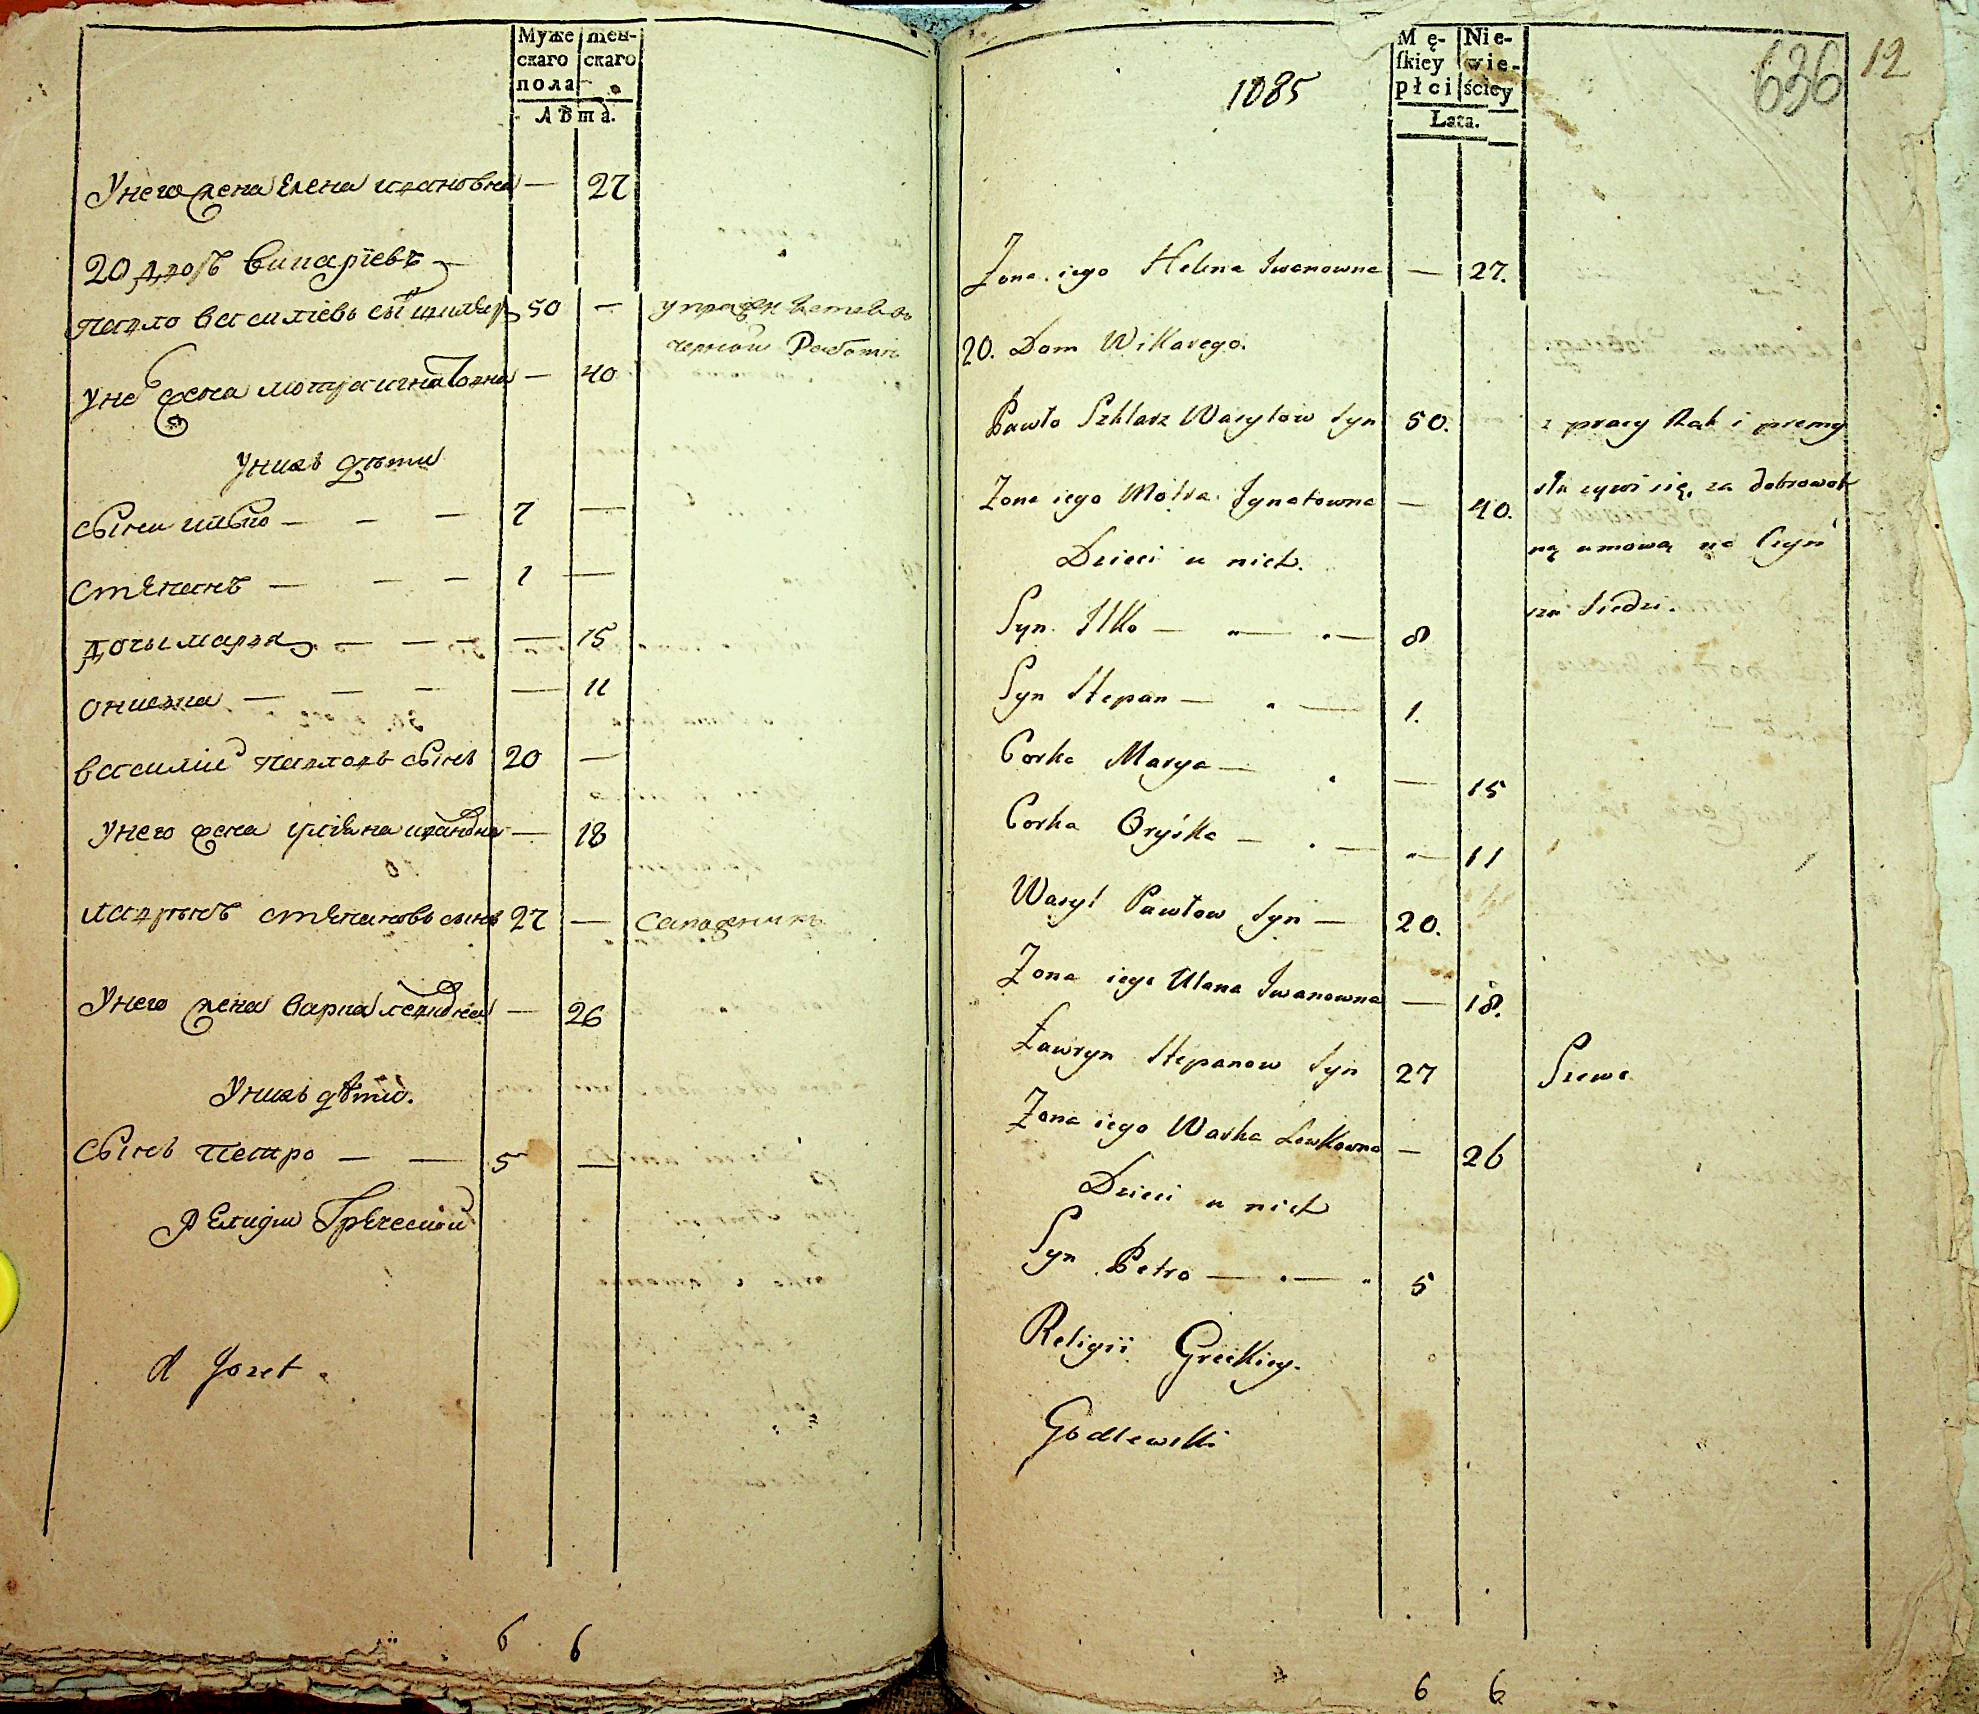 Муже скаго пола
жен- скаго
Лѣта.
У него жена Елена Ивановна — 27
20 двор викариевъ
Павло Василіевъ сынъ шкляр 50 —
упражняется в
черной работе
У него жена Мотря Игнатовна — 40
У нихъ дѣти
Сыни Илько — — — 7 —
Степанъ — — — 1 —
Дочь Марья — — — — 15
Ониська — — — — 11
Василий Павловъ сынъ 20 —
У него жена Уляна Ивановна — 18
Лавринъ Степановъ сынъ 27 — сапожникъ
У него жена Варка Левковна — 26
У нихъ дѣти.
Сынъ Петро — — 5 —
Релидии Греческой
6 6
1085
636 12
Mę- skiey płci
Nie- wie- ściey
Lata.
Żona iego Helena Iwanowna — 27.
20. Dom Wikarego.
Pawło Szklarz Wasylow Syn 50.
z pracy Rąk i przemy
Żona iego Motra Ignatowna — 40.
słu żywi się, za dobrowol
Dzieci u nich.
ną umową na Czyn
Syn Ilko — „— „— 8
szu siedzi.
Syn Stepan — „ — 1.
Corka Marya — „ — 15
Corka Oryśka — „ — „— 11
Wasyl Pawłow Syn — 20.
Żona iego Ulana Iwanowna — 18.
Ławryn Stepanow Syn 27 Szewc
Żona iego Warka Lewkowna — 26
Dzieci u nich
Syn Petro — „— „ 5
Religii Greckiey.
Godlewski
6 6